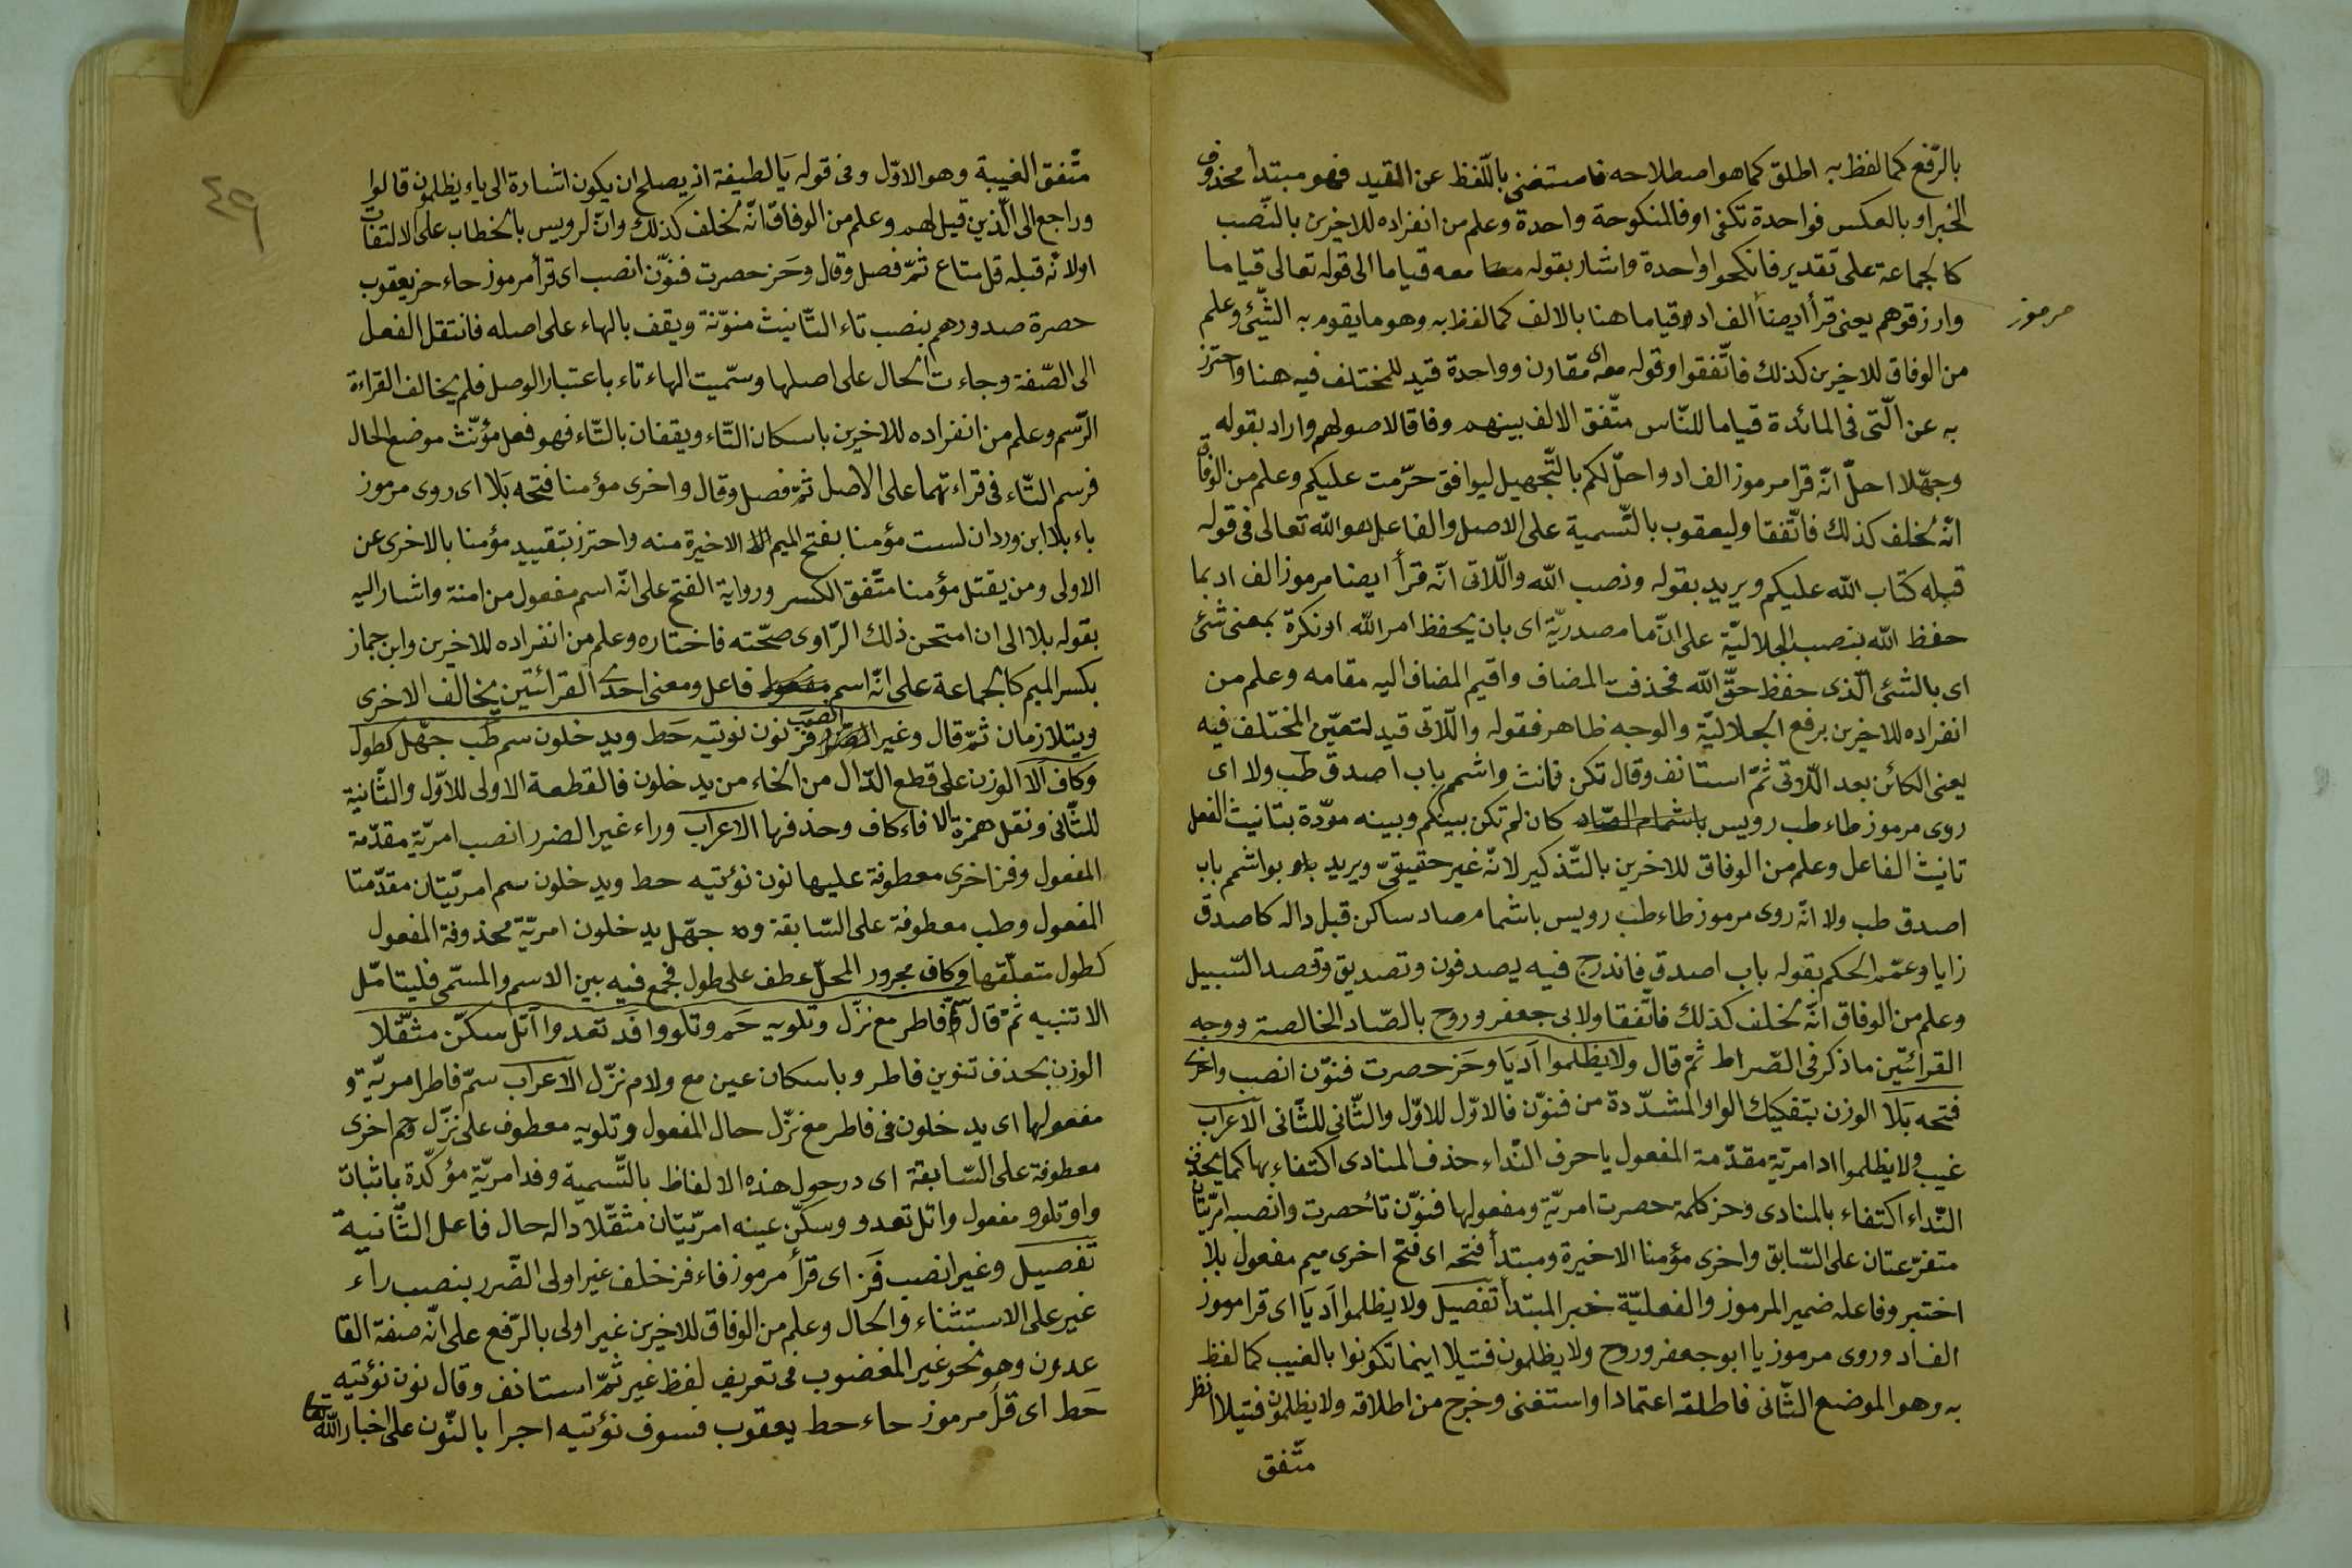 بالرّفع كما لفظ به اطلق كما هو اصطلاحه فاستغنى باللّفظ عن القيد فهو مبتدأ محذوف
الخبر او بالعكس فواحدة تكفى او فالمنكوحة واحدة وعلم من انفراده للاخرين بالنّصب
كالجماعة على تقدير فانكحوا واحدة واشار بقوله معه قياما الى قوله تعالى قياما
وارزقوهم يعنى قرأ ايضا الف اد قياما هنا بالالف كما لفظ به وهو ما يقوم به الشّئ وعلم
مرموز
من الوفاق للاخرين كذلك فاتّفقوا وقوله معه اى مقارن وواحدة قيد للمختلف فيه هنا واحترز
به عن الّتى فى المائدة قياما للنّاس متّفق الالف بينهم وفاقا لاصولهم واراد بقوله
وجهّلا احلّ انّه قرا مرموز الف اد واحلّ لكم بالتّجهيل ليوافق حرّمت عليكم وعلم من الوفاق
انّه لخلف كذلك فاتّفقا وليعقوب بالتّسمية على الاصل والفاعل هو الله تعالى فى قوله
قبله كتاب الله عليكم ويريد بقوله ونصب الله واللّاتى انّه قرأ ايضا مرموز الف اد بما
حفظ الله بنصب الجلاليّة على انّ ما مصدريّة اى بان يحفظ امر الله او نكرة بمعنى شئ
اى بالشئ الّذى حفظ حقّ الله فحذفت المضاف واقيم المضاف اليه مقامه وعلم من
انفراده للاخرين برفع الجلاليّة والوجه ظاهر فقوله واللّاتى قيد لتعيّن المختلف فيه
يعنى الكائن بعد اللّاتى ثمّ استانف وقال تكن فانث واشمم باب اصدق طب ولا اى
روى مرموز طاء طب رويس كان لم تكن بينكم وبينه مودّة بتانيث الفعل
تانيث الفاعل وعلم من الوفاق للاخرين بالتّذكير لانّه غير حقيقىّ ويريد بواشمم باب
اصدق طب ولا انّه روى مرموز طاء طب رويس باشمام صاد ساكن قبل داله كاصدق
زايا وعمّم الحكم بقوله باب اصدق فاندرج فيه يصدفون وتصديق وقصد السّبيل
وعلم من الوفاق انّه لخلف كذلك فاتّفقا ولابى جعفر وروح بالصّاد الخالصة ووجه
القرائتين ما ذكر فى الصّراط ثمّ قال ولا يظلموا اد يا وحز حصرت فنوّن انصب واخرى
فتحه بلا الوزن بتفكيك الواو المشدّدة من فنوّن فالاوّل للاوّل والثّانى للثّانى الاعراب
غيب ولا يظلموا اد امريّة مقدّمة المفعول يا حرف النّداء حذف المنادى اكتفاء بها كما يحذف
النّداء اكتفاء بالمنادى وحز كلمة حصرت امريّة ومفعولها فنوّن تا حصرت وانصبه امريّتان
متفرّعتان على السّابق واخرى مؤمنا الاخيرة ومبتدأ فتحه اى فتح اخرى ميم مفعول بلا
اختبر وفاعله ضمير المرموز والفعليّة خبر المبتدأ تفصيل ولا يظلموا اد يا اى قرا مرموز
الف اد وروى مرموز يا ابو جعفر وروح ولا يظلمون فتيلا اينما تكونوا بالغيب كما لفظ
به وهو الموضع الثّانى فاطلقه اعتمادا واستغنى وخرج من اطلاقه ولا يظلمون فتيلا انظر
متّفق
٤٩
متّفق الغيبة وهو الاوّل وفى قوله يا لطيفة اذ يصلح ان يكون اشارة الى ياء يظلمون قالوا
وراجع الى الّذين قيل لهم وعلم من الوفاق انّه لخلف كذلك وانّ لرويس بالخطاب على الالتفات
او لانّه قبله قل متاع ثمّ فصل وقال وحز حصرت فنوّن انصب اى قرأ مرموز حاء حز يعقوب
حصرة صدورهم بنصب تاء التّانيث منوّنة ويقف بالهاء على اصله فانتقل الفعل
الى الصّفة وجاءت الحال على اصلها وسمّيت الهاء تاء باعتبار الوصل فلم يخالف القراءة
الرّسم وعلم من انفراده للاخرين باسكان التّاء ويقفان بالتّاء فهو فعل مؤنّث موضع الحال
فرسم التّاء فى قراءتهما على الاصل ثمّ فصل وقال واخرى مؤمنا فتحه بلا اى روى مرموز
باء بلا ابن وردان لست مؤمنا بفتح الميم الاخيرة منه واحترز بتقييد مؤمنا بالاخرى عن
الاولى ومن يقتل مؤمنا متّفق الكسر ورواية الفتح على انّه اسم مفعول من امنة واشار اليه
بقوله بلا الى ان امتحن ذلك الرّاوى صحّته فاختاره وعلم من انفراده للاخرين وابن جماز
بكسر الميم كالجماعة على انّه اسم فاعل ومعنى احدى القرائتين يخالف الاخرى
ويتلازمان ثمّ قال وغير انصب فز نون نوتيه حط ويدخلون سم طب جهّل كطول
وكاف الا الوزن على قطع الدّال من الخاء من يدخلون فالقطعة الاولى للاوّل والثّانية
للثّانى ونقل همزة الا فاء كاف وحذفها الاعراب وراء غير الضرر انصب امريّة مقدّمة
المفعول وفز اخرى معطوفة عليها نون نؤتيه حط ويدخلون سم امريّتان مقدّمتا
المفعول وطب معطوفة على السّابقة و جهّل يدخلون امريّة محذوفة المفعول
كطول متعلّقها وكاف مجرور المحلّ عطف على طول فجمع فيه بين الاسم والمسمّى فليتامّل
الا تنبيه ثمّ قال وفاطر مع نزّل وتلويه حم وتلووا فد تعدوا اتل سكّن مثقّلا
الوزن بحذف تنوين فاطر وباسكان عين مع ولام نزّل الاعراب سمّ فاطر امريّة و
مفعولها اى يدخلون فى فاطر مع نزّل حال المفعول وتلويه معطوف على نزّل وحم اخرى
معطوفة على السّابقة اى درحول هذه الالفاظ بالتّسمية وفد امريّة مؤكّدة باثبات
واو تلوو مفعول واتل تعدو وسكّن عينه امريّتان مثقّلا داله حال فاعل الثّانية
تفصيل وغير انصب فز اى قرأ مرموز فاء فز خلف غير اولى الضّرر بنصب راء
غير على الاستثناء والحال وعلم من الوفاق للاخرين غير اولى بالرّفع على انّه صفة القا
عدون وهو نحو غير المغضوب فى تعريف لفظ غير ثمّ استانف وقال نون نؤتيه
حط اى قرأ مرموز حاء حط يعقوب فسوف نؤتيه اجرا بالنّون على اخبار الله تعالى